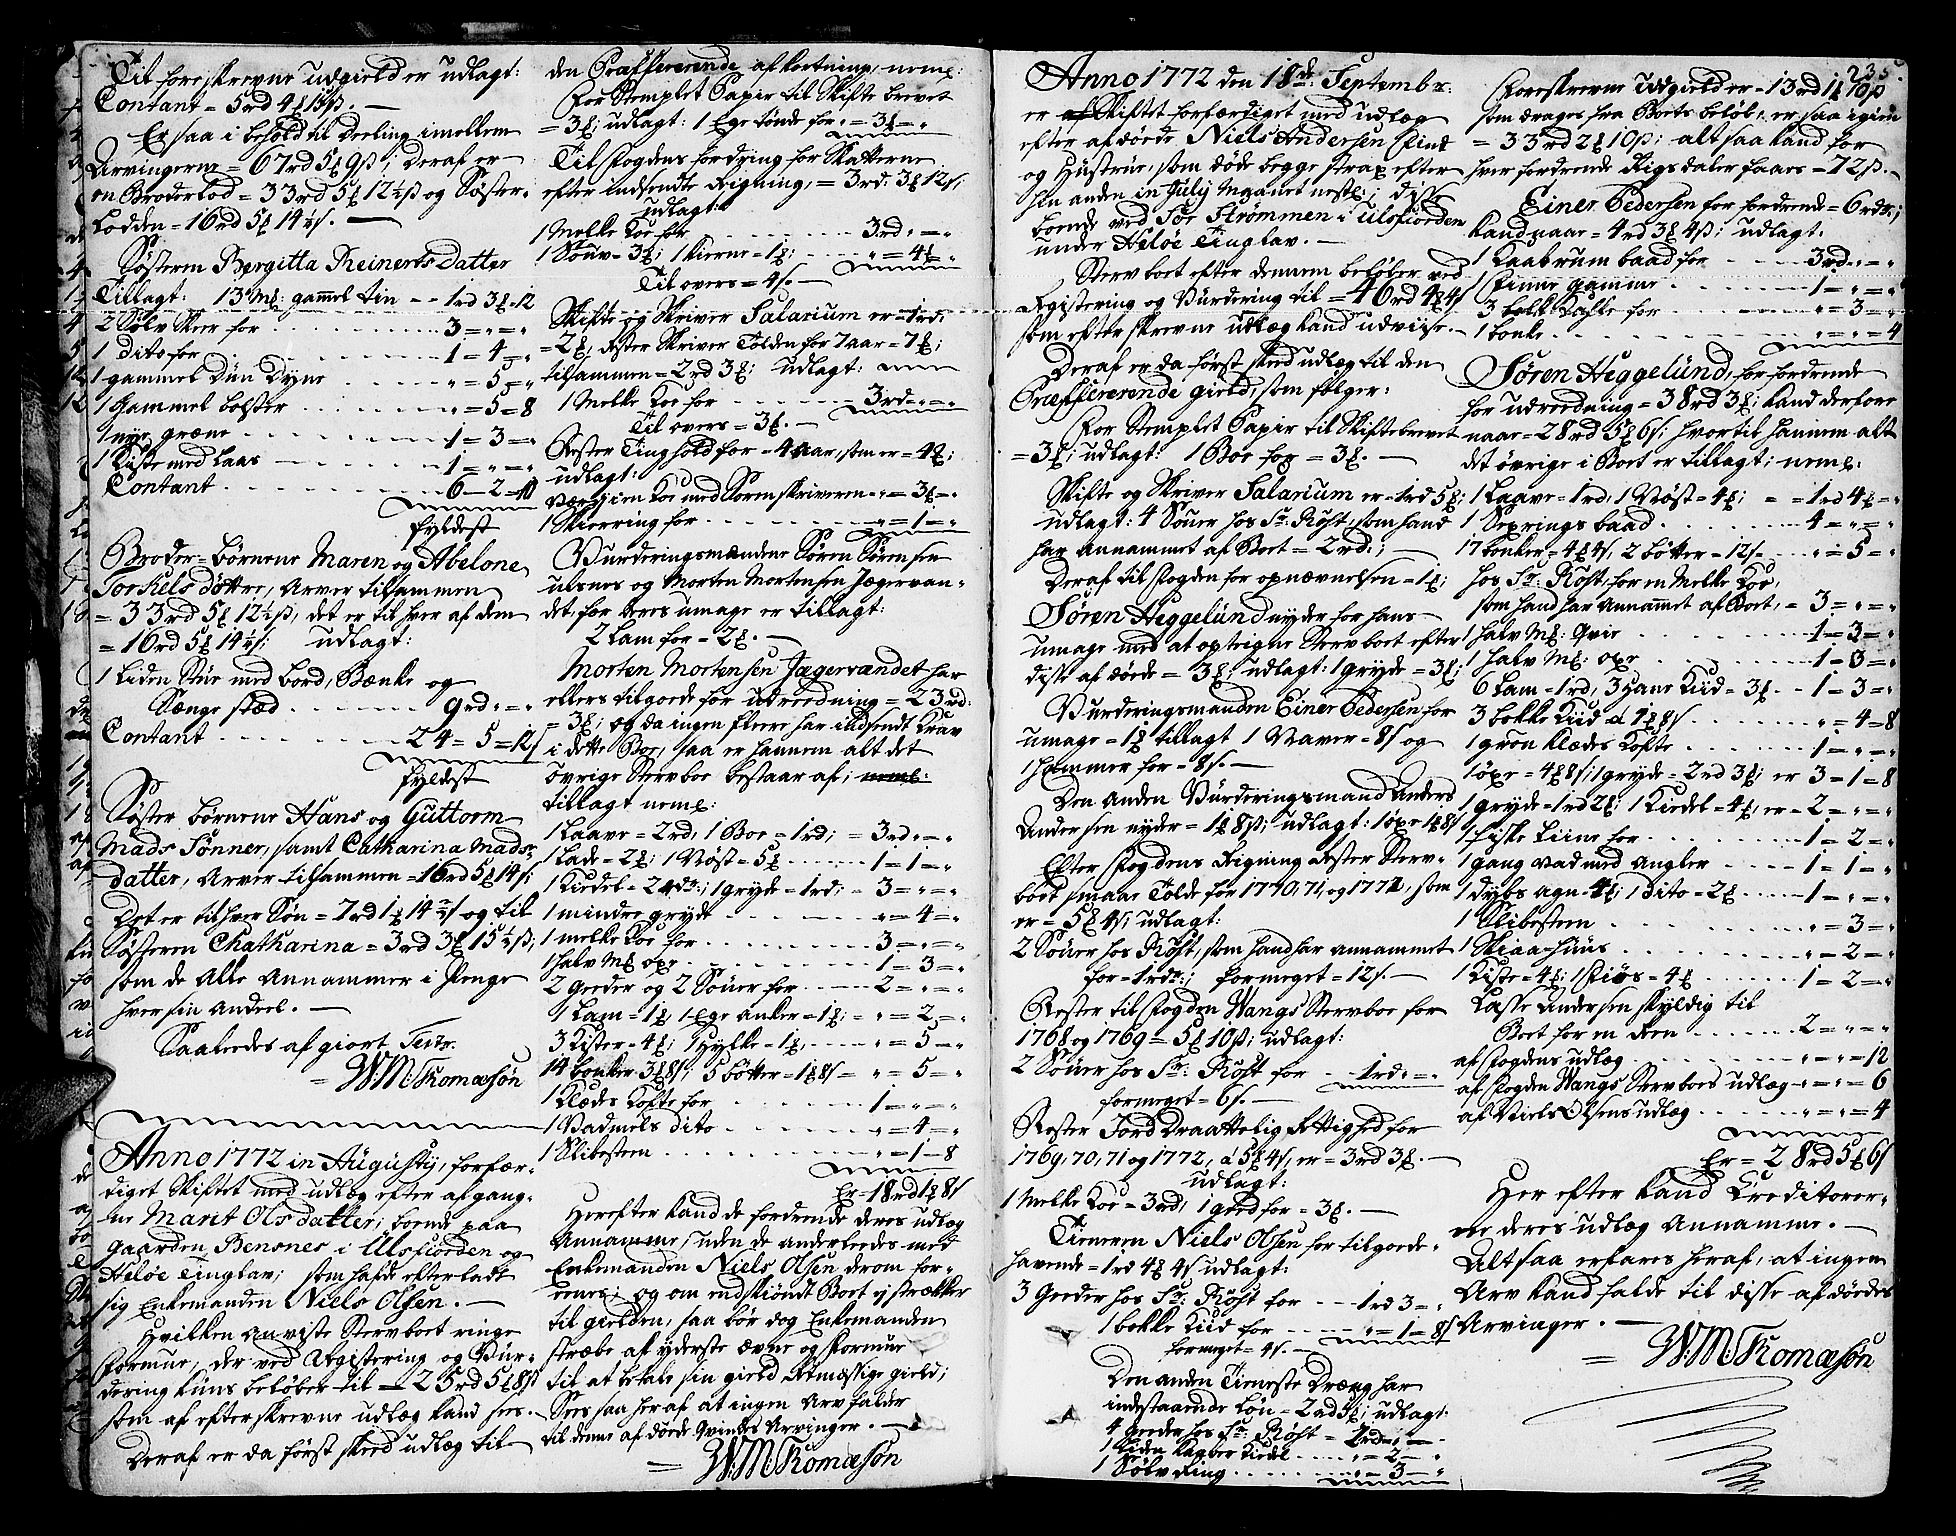 Til foreskrevne udgield er udlagt:
Contant = 5rd 4 ß 15 ß. —
Er saa i behold til Deeling imellem
Arvingerne = 67rd 5 ß 9 ß; Deraf er
en Broderlod = 33rd 5 ß 12½ ß og Søster-
Lodden = 16rd 5 ß 14¼ ß. —
Søsteren Bergitta Reinerts Datter
Tillagt: 13 Mk: gammel tin - - 1rd 3 ß 12
2 Sølv Skeer for . . . 3 = " = "
1 dito for . . . 1 = 4 = "
1 gammel Dun Dyne . . . " = 5 = "
1 Gammel bolster . . . " = 5 = 8
1 nye grene . . . 1 = 3 = "
1 Kiste med Laas . . . 1 = " = "
Contant . . . 6 - 2 - 10
fyldest
Broder-børnene Maren og Abelone
Torkels døttre, Arver tilsammen
= 33rd 5 ß 12½ ß, det er til hver af dem
= 16rd 5 ß 14¼ ß; udlagt:
1 Liden Stue med bord, Bænke og
Senge sted . . . 9rd = " = "
Contant . . . 24 = 5 = 12 ß
fyldest
Søster børnene Hans og Guttorm
Mads Sønner, samt Catharina Mads-
datter, Arver tilsammen = 16rd 5 ß 14 ß;
Det er til hver Søn = 7rd 1 ß 14 ß og til
Søsteren Chatharina = 3rd 3 ß 15 ß;
som de Alle Annammer i Penge
hver sin Andeel. —
Saaledes afgiort Test:
= W.M. Thomæsøn
Anno 1772 in Augusty, forfær-
diget Skiftet med udlæg efter afgang-
ne Marit Olsdatter, boende paa
gaarden Bensnes i Ulsfiorden og
Heløe Tinglav; som hafde efterladt
sig Enkemanden Niels Olsen. —
Hvilken anviste Stervboet ringe
formue, der ved Registering og Vur-
dering kuns beløber til = 25rd 5 ß 8 ß
som af efterskrevne udlæg kand sees.
Deraf er da først skeed udlæg til
den Præffererende afkortning, neml:
For Stemplet Papir til Skifte brevet
= 3 ß; udlagt: 1 Ege tønde for = 3 ß = "
Til fogdens fordring for Skatterne
efter indsendte Rigning, = 3rd: 3 ß 12 ß;
udlagt:
1 Melke Koe for . . . 3rd = " = "
1 Souv = 3 ß; 1 Kierne = 1 ß; . . . " = 4 ß "
Til overs = 4 ß. —
Skifte og Skriver Salarium er = 1rd:
= 2 ß, Rester Skriver Tolden for 7 aar = 7 ß;
tilsammen = 2rd 3 ß; udlagt:
1 Melke Koe for . . . 3rd = " = "
Til overs = 3 ß. —
Rester Tinghold for = 4 aar, som er = 4 ß;
udlagt:
Værgien Koe med Sorenskriveren = 3 ß = "
1 Skierring for . . . " = 1 = "
Vurderingsmændene Sören Sörensen
ulsnes og Morten Mortensen Jægervan-
det, for deres umage er tillagt:
2 Lam for = 2 ß. —
Morten Mortensen Jægervandet har
ellers tilgode for udreedning = 23rd:
= 3 ß; og da ingen fleere har indsendt Krav
i dette Boe, saa er hannem alt det
övrige Stervboe bestaar af;
tillagt neml:
1 Laave = 2rd, 1 Boe = 1rd; = 3rd = " = "
1 Lade = 2 ß; 1 Nöst = 5 ß . . . 1 = 1 = "
1 Kiedel = 2rd; 1 gryde = 1rd; = 3 = " = "
1 mindre gryde . . . " = 4 = "
1 melke Koe for . . . 3 = " = "
1 halv Mk oxe . . . 1 = 3 = "
2 Geeder og 2 Souer for . . . 2 = " = "
1 Lam = 1 ß; 1 Ege anker = 1 ß; = " = 2 = "
3 Kister = 4 ß; 1 Hylke = 1 ß; . . . " = 5 = "
14 bonker 3 ß 8 ß; 5 bötter = 1 ß 8 ß = " = 5 = "
1 Klædes Kofte for . . . 1 = " = "
1 Vadmels dito . . . " = 4 = "
1 Slibesteen . . . " = 1 = 8
Er = 18rd 1 ß 8 ß
Herefter kand de fordrende deres udlæg
Annamme, uden de anderleedes med
Enkemanden Niels Olsen derom for-
eenes; og om endskiöndt Boet ei strækker
til gielden, saa bör dog Enkemanden
stræbe af yderste ævne og formue
til at betale sin gield Retmæssige gield;
Sees saa heraf at ingen Arv falder
til denne afdöede Qvindes Arvinger. —
= W.M. Thomæsøn
235.
Anno 1772 den 18de Septembr:
er Skiftet forfærdiget med udlæg
efter afdöede Niels Andersen Find
og Hustrue, som döde begge strax efter
hin anden in July Maanet nestl:; disse
boende ved Sör Strömmen i Ulsfiorden
under Heløe Tinglav. —
Stervboet efter dennem beløber ved
Registering og Vurdering til = 46rd 4 ß 4 ß
som efterskrevne udlæg kand udviise. —
Deraf er da först skeed udlæg til den
Præffererende gield, som følger:
For Stemplet Papir til Skiftebrevet
= 3 ß; udlagt: 1 Boe for = 3 ß. —
Skifte og Skriver Salarium er = 1rd 5 ß;
udlagt: 4 Souer hos Sr: Röst, som hand
har annammet af Boet = 2rd:; —
Deraf til fogden for opnævnelsen = 1 ß;
Søren Heggelund nyder for hans
umage med at opteigne Stervboet efter
disse afdöede = 3 ß; udlagt: 1 gryde = 3 ß;
Vurderingsmanden Einer Pedersen for
umage = 1 ß tillagt 1 Naver = 8 ß og
1 hammer for = 8 ß. —
Den anden Vurderingsmand Anders
Andersen nyder = 1 ß 8 ß; udlagt: 1 oxe 1 ß 8 ß
Efter fogdens Rigning Rester Sterv-
boet smaae Tolde for 1770, 71, og 1772, som
er = 5 ß 4 ß; udlagt:
2 Souer hos Röst, som hand har annammet
for = 1rdr:; formeget = 12 ß. —
Rester til fogden Wangs Stervboe for
1768 og 1769 = 5 ß 10 ß; udlagt:
2 Souer hos Sr: Röst for - - 1rd: = "
formeget = 6 ß. —
Rester Jorddraattelig Rettighed for
1769, 70, 71 og 1772, á 5 ß 4 ß, er = 3rd 3 ß. —
udlagt:
1 Melke Koe = 3rd, 1 geed for = 3 ß. —
Tieneren Niels Olsen for tilgode-
havende = 1rd 4 ß 4 ß udlagt:
3 Geeder hos Sr: Röst for - - 1rd 3 = "
1 bokke Kiid for . . . " = 1 = 8 ß
formeget = 4 ß. —
Den anden Tieneste Dreng har
indestaaende Løn = 2rd 5 ß; udlagt:
4 Geeder hos Sr: Röst = 2rd = " —
1 Liden Kaaber Kiedel . . . " = 2 = "
1 Sölv Ring . . . " = 3 = "
Foreskrevne Udgield er = 13rd 1 ß 10 ß
som drages fra Boets beløb, er saa igien
= 33rd 2 ß 10 ß; alt saa kand for
hver fordrende Rigsdaler faaes = 72 ß. —
Einer Pedersen for fordrende = 6rdr:;
kand naae = 4rd 3 ß 4 ß; udlagt:
1 Kaabrums baad for . . . 3rd = " = "
1 Finne gamme . . . 1 = " = "
3 bokke Kalke for . . . " = 3 = "
1 bonke . . . " = " = 4
Søren Heggelund, for fordrende
for udreedning = 38rd 3 ß; kand derfore
naae = 28rd 5 ß 6 ß; hvortil hannem alt
det övrige i Boet er tillagt; neml:
1 Laave = 1rd, 1 Nöst = 4 ß; = = 1rd 4 ß = "
1 Seprings baad . . . 4 = " = "
17 bonker = 4 ß 4 ß, 2 bötter = 12 ß . . . " = 5 = "
hos Sr: Röst, for en Melke Koe,
som hand har Annammet af Boet, = 3 = " = "
1 halv Mk: Qvie . . . 1 = 3 = "
1 halv Mk: oxe . . . 1 = 3 = "
6 Lam = 1rd, 3 Hane Kiid = 3 ß . . 1 = 3 = "
3 bokke Kiid á 1 ß 8 ß . . . " = 4 = 8
1 grön Klædes Kofte . . . 1 = " = "
1 oxe = 4 ß 8 ß; 1 gryde = 2rd 3 ß; er 3 = 1 = 8
1 gryde = 1rd 2 ß; 1 Kiedel = 4 ß, er = 2 = " = "
1 fiske Liine for . . . 1 = 2 = "
1 gang vad med Angler . . . 1 = 1 = "
1 dybs agn = 4 ß; 1 dito = 2 ß . . . 1 = " = "
1 Slibesteen . . . " = 3 = "
1 Skiaa-huus . . . " = 2 = "
1 Kiste = 4 ß; 1 Fiös = 4 ß . . . 1 = 2 = "
Lasse Andersen skyldig til
Boet for en Reen . . . 2 = " = "
af fogdens udlæg . . . " = " = 12
af fogden Wangs Stervboes udlæg " = " = 6
af Niels Olsens udlæg . . . " = " = 4
Er = 28rd 5 ß 6 ß
Her efter kand Creditorer-
ne deres udlæg Annamme. —
Altsaa erfares heraf, at ingen
Arv kand falde til disse afdöedes
Arvinger. —
= W.M. Thomæsøn